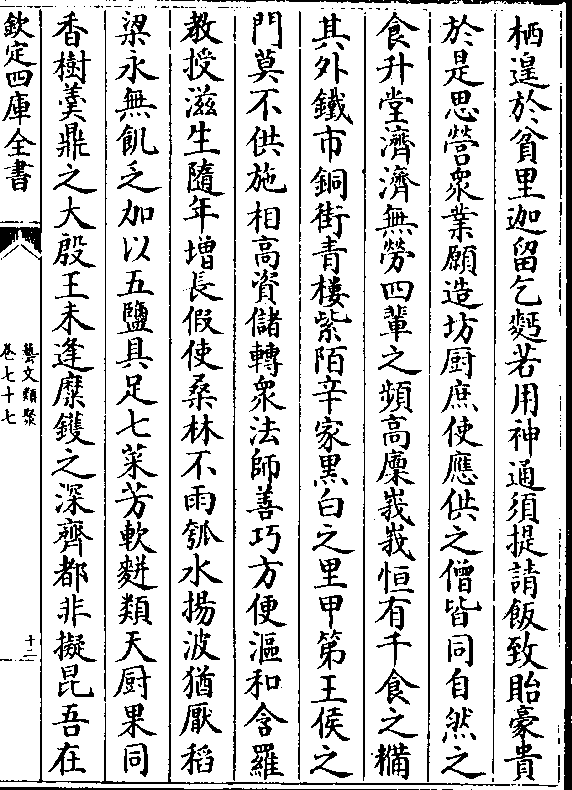 栖遑於貧里迦留乞麫若用神通須提請飯致貽豪貴
於是思營衆業願造坊厨庶使應供之僧皆同自然之
食升堂濟濟無勞四輩之頻高廩峩峩恒有千食之糒
其外鐵市銅街青樓紫陌辛家黒白之里甲第王侯之
門莫不供施相高資儲轉衆法師善巧方便漚和含羅
教授滋生隨年增長假使桑林不雨瓠水揚波猶厭稻
粱永無飢乏加以五鹽具足七菜芳軟麨類天厨果同
香樹羮鼎之大殷王未逢糜鑊之深齊都非擬昆吾在
欽定四庫全書
藝文類聚
卷七十七
十二